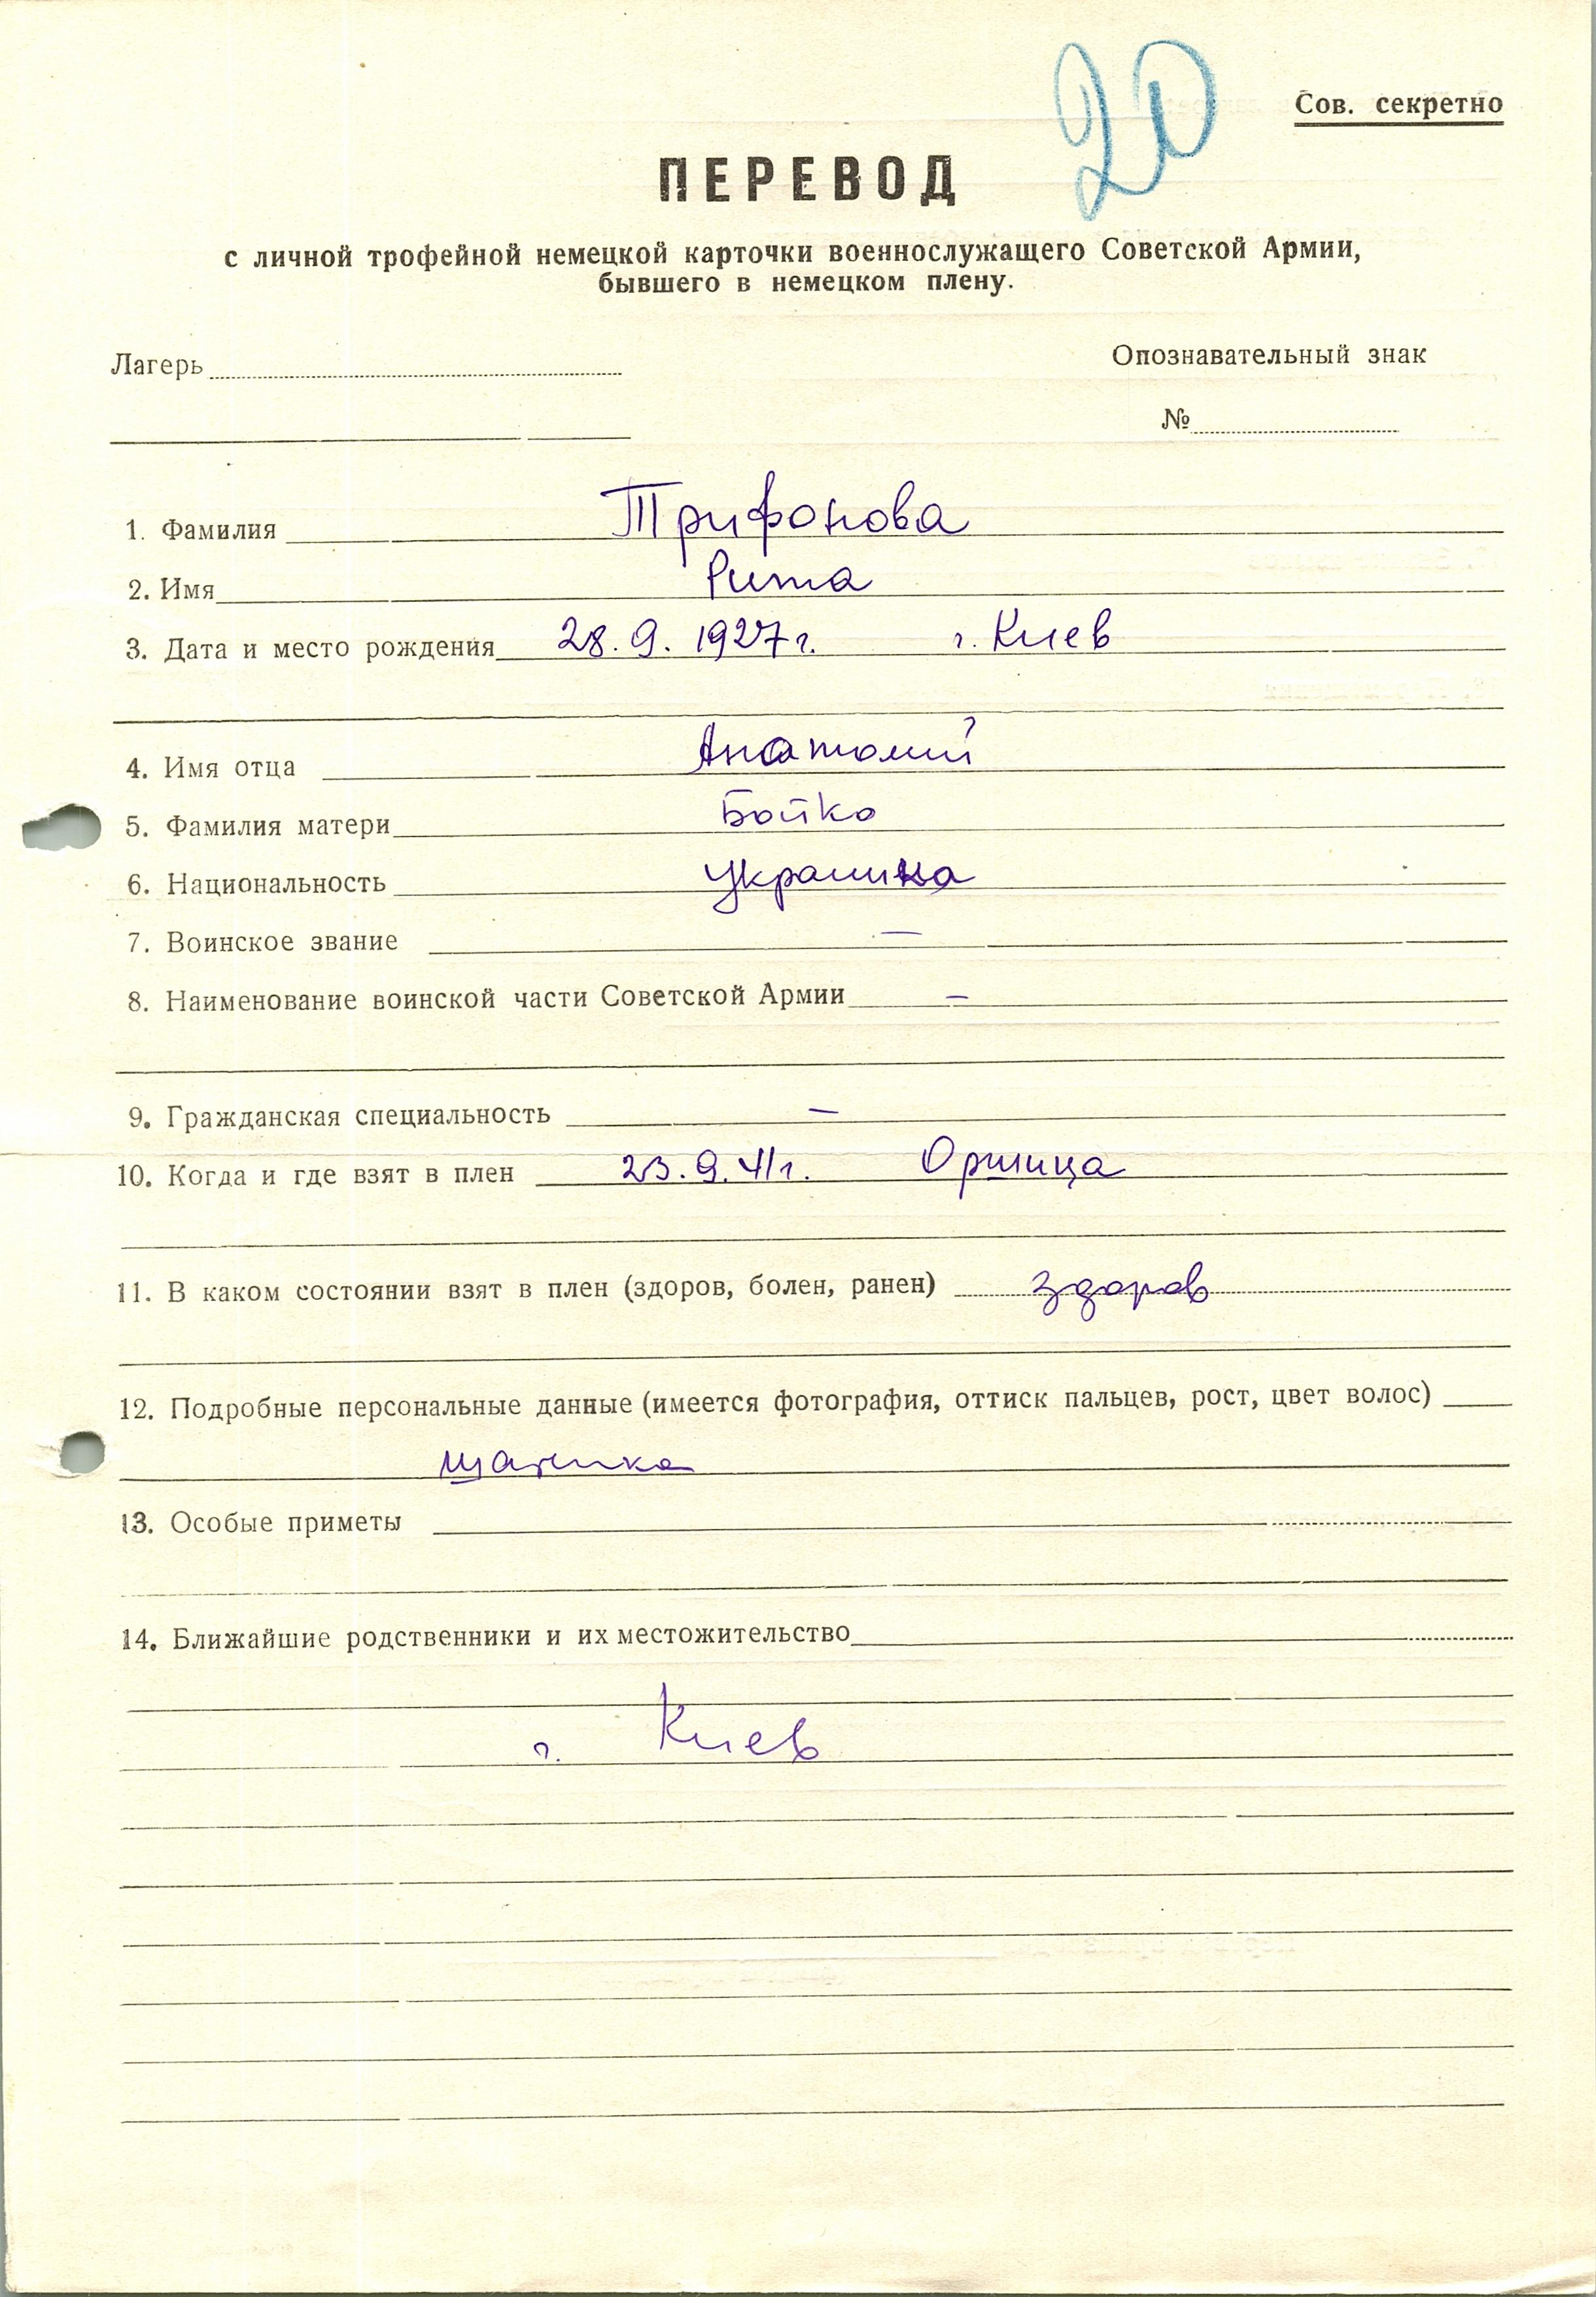 20
Сов. секретно
ПЕРЕВОД
с личной трофейной немецкой карточки военнослужащего Советской Армии,
бывшего в немецком плену.
Лагерь
Опознавательный знак
№
1. Фамилия Трифонова
2. Имя Рита
3. Дата и место рождения 28.9. 1927г. г. Киев
4. Имя отца Анатолий
5. Фамилия матери Бойко
6. Национальность украинка
7. Воинское звание —
8. Наименование воинской части Советской Армии —
9. Гражданская специальность —
10. Когда и где взят в плен 23.9.41г. Оршица
11. В каком состоянии взят в плен (здоров, болен, ранен) здоров
12. Подробные персональные данные (имеется фотография, оттиск пальцев, рост, цвет волос)
шатенка
13. Особые приметы
14. Ближайшие родственники и их местожительство
г. Киев